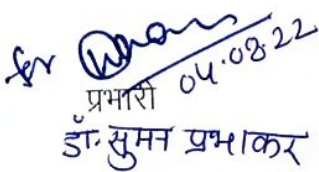 for 04.08.22
प्रभारी
डॉ. सुमन प्रभाकर